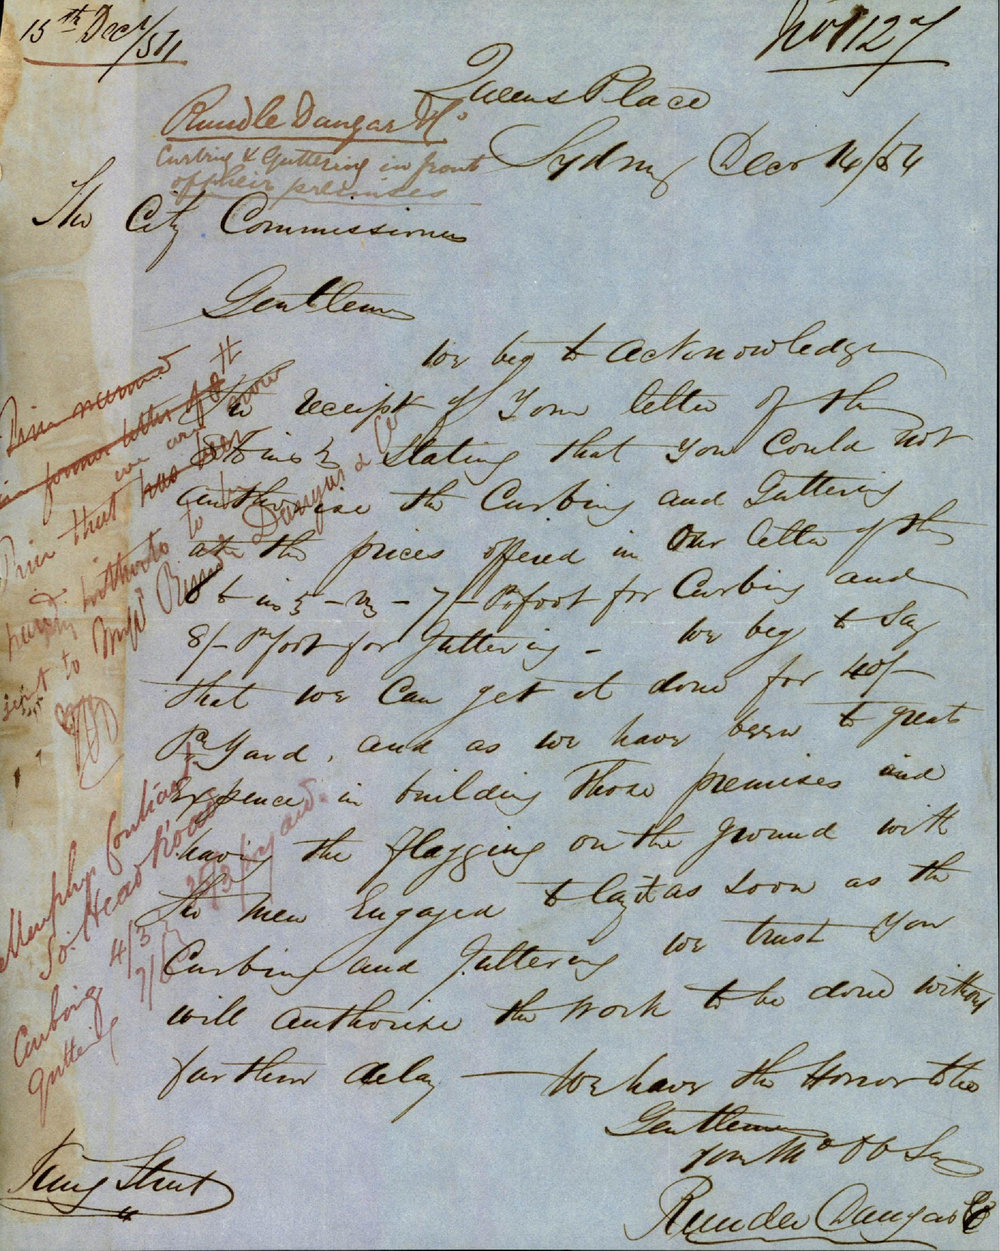 15th Decr/54
No 1127
Queens Place
Sydney Decr 14/54
Rundle Dangar & Co
Curbing & Guttering in front
of their premises
The City Commissioners
Gentlemen
We beg to acknowledge
the receipt of Your letter of the
inst stating that You Could not
authorise the Curbing and Guttering
at the prices offered in Our letter of the
6th inst - viz - 7/- Pr foot for Curbing and
8/- Pr foot for Guttering - We beg to say
that we Can get it done for 40/-
Pr Yard, and as we have been to great
Expence in building those premises and
having the flagging on the ground with
the men Engaged to lay it as soon as the
Curbing and Guttering we trust You
will authorise the work to be done without
further delay — We have the Honor to be
Gentlemen
Your Mo Ob Sev
Rundle Dangar & Co
Price named
in former letter of 8th
Price that has been
we are now
paying hitherto to be
sent to Messrs Rundle Dangar & Co
Murphys contract
So. Head Road
25/3/ yard.
Curbing 4/3
Guttering 7/6
King Street